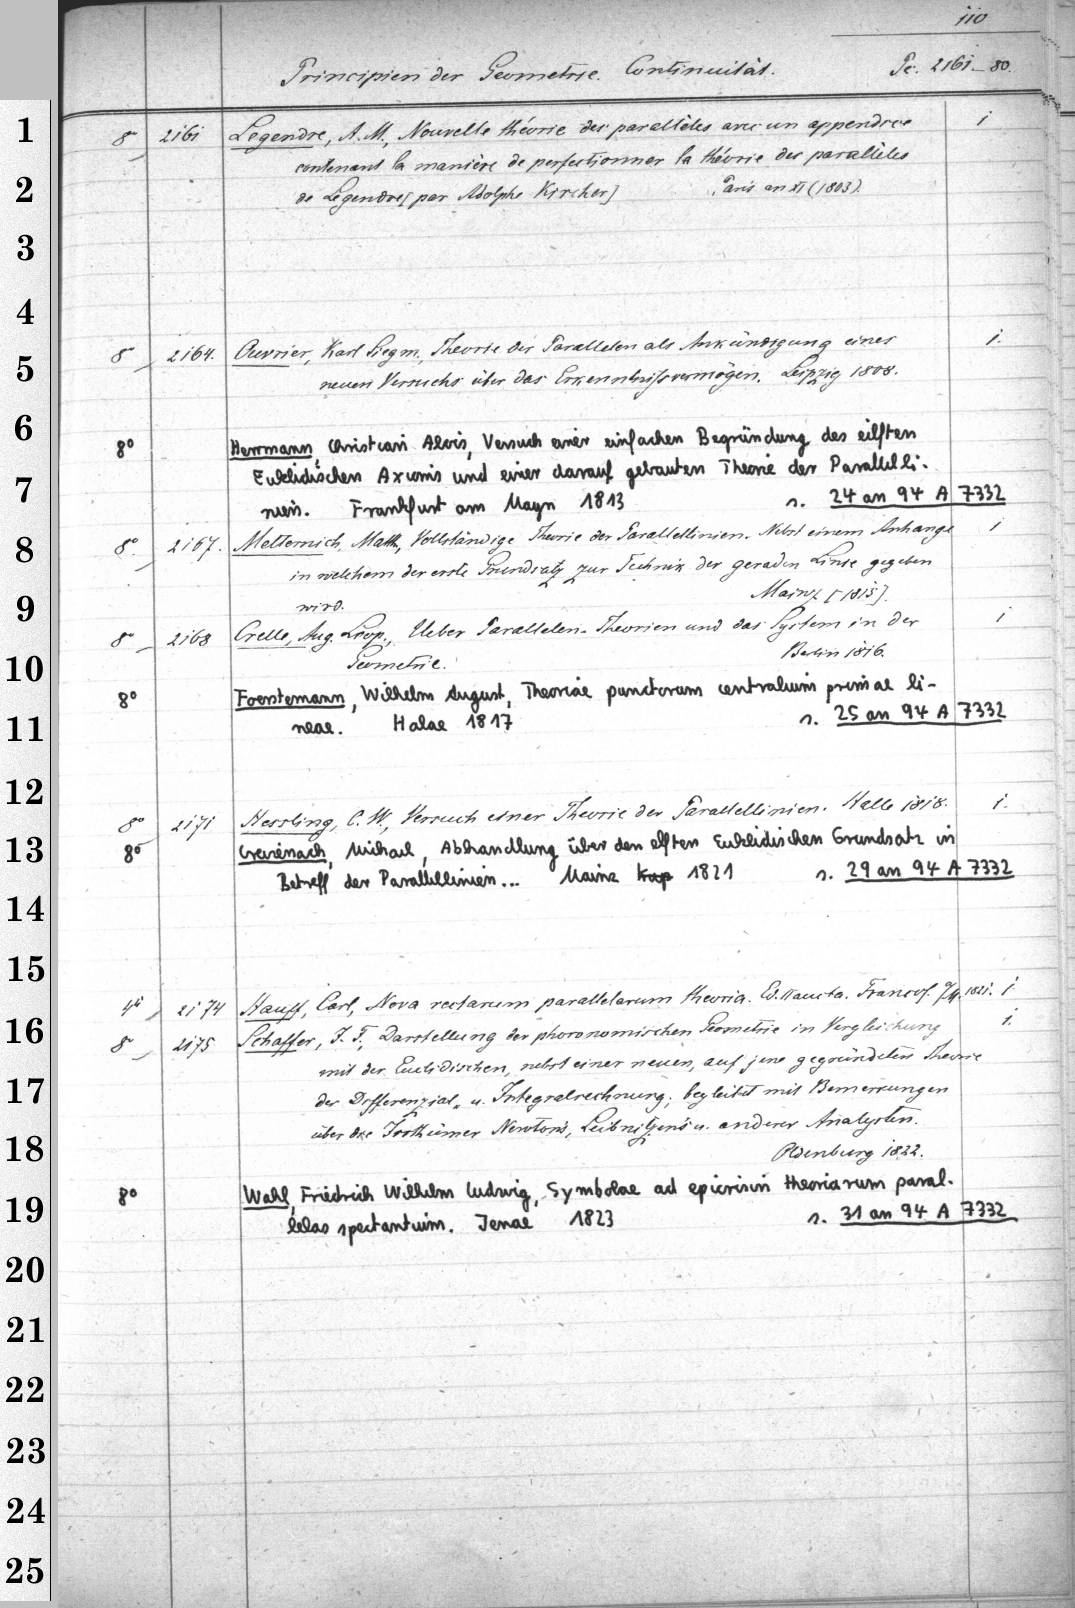 110
Principien der Geometrie. Continuität. Pc. 2161–80.
1
8° 2161 Legendre, A. M., Nouvelle théorie des parallèles avec un appendice i
contenant la manière de perfectionner la théorie des parallèles
2
de Legendre [par Adolphe Kircher] Paris an XI (1803).
3
4
8° 2164. Ouvrier, Karl Siegm., Theorie der Parallelen als Ankündigung eines i.
5
neuen Versuchs über das Erkenntnißvermögen. Leipzig 1808.
6
8° Herrmann, Christian Alois, Versuch einer einfachen Begründung des eilften
Euklidischen Axioms und einer darauf gebauten Theorie der Parallelli-
7
nien. Frankfurt am Mayn 1813 s. 24 an 94 A 7332
8
8° 2167. Metternich, Math., Vollständige Theorie der Parallellinien. Nebst einem Anhange i
in welchem der erste Grundsatz zur Technik der geraden Linie gegeben
9
wird. Mainz [1815].
8° 2168 Crelle, Aug. Leop., Ueber Parallelen-Theorien und das System in der i
10
Geometrie. Berlin 1816.
8° Foerstemann, Wilhelm August, Theoriae punctorum centralium primae li-
11
neae. Halae 1817 s. 25 an 94 A 7332
12
8° 2171 Hessling, C. W., Versuch einer Theorie der Parallellinien. Halle 1818. i.
13
8° Creizenach, Michael, Abhandlung über den elften Euklidischen Grundsatz in
Betreff der Parallellinien... Mainz 1821 s. 29 an 94 A 7332
14
15
4° 2174 Hauff, Carl, Nova rectarum parallelarum theoria. Ed. II aucta. Francof. 1821. i
16
8° 2175 Schaffer, J. F., Darstellung der phoronomischen Geometrie in Vergleichung i.
mit der Euclidischen, nebst einer neuen, auf jene gegründeten Theorie
17
der Differenzial- u. Integralrechnung; begleitet mit Bemerkungen
über die Irrthümer Newton's, Leibnitzens u. anderer Analysten.
18
Oldenburg 1822.
8° Wahl, Friedrich Wilhelm Ludwig, Symbolae ad epicrisin theoriarum paral-
19
lelas spectantium. Jenae 1823 s. 31 an 94 A 7332
20
21
22
23
24
25